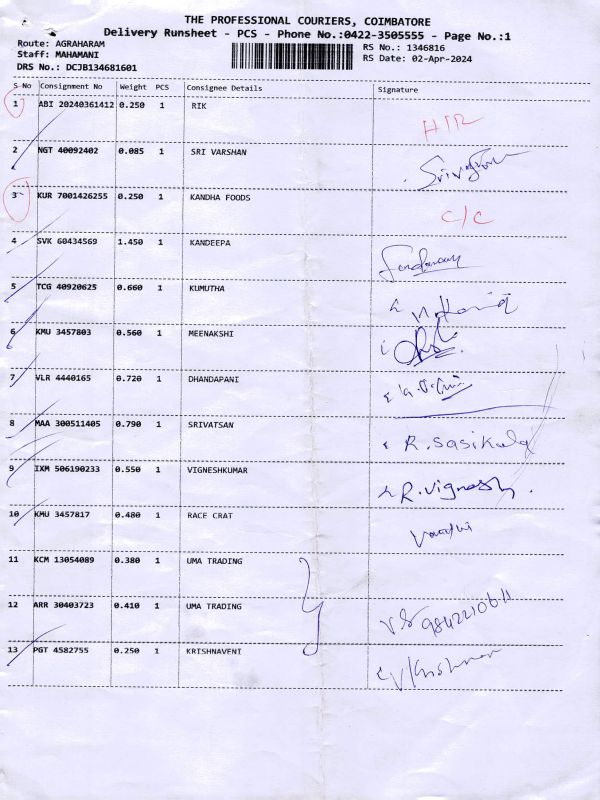 THE PROFESSIONAL COURIERS, COIMBATORE
Delivery Runsheet - PCS - Phone No.:0422-3505555 - Page No.:1
Route: AGRAHARAM RS No.: 1346816
Staff: MAHAMANI RS Date: 02-Apr-2024
DRS No.: DCJB134681601
S No Consignment No Weight PCS Consignee Details Signature
1 ABI 20240361412 0.250 1 RIK
2 NGT 40092402 0.085 1 SRI VARSHAN
3 KUR 7001426255 0.250 1 KANDHA FOODS C/C
4 SVK 60434569 1.450 1 KANDEEPA
5 TCG 40920625 0.660 1 KUMUTHA
6 KMU 3457803 0.560 1 MEENAKSHI
7 VLR 4440165 0.720 1 DHANDAPANI
8 MAA 300511405 0.790 1 SRIVATSAN R. Sasikala
9 IXM 506190233 0.550 1 VIGNESHKUMAR R. Vignesh.
10 KMU 3457817 0.480 1 RACE CRAT
11 KCM 13054089 0.380 1 UMA TRADING
12 ARR 30403723 0.410 1 UMA TRADING
13 PGT 4582755 0.250 1 KRISHNAVENI